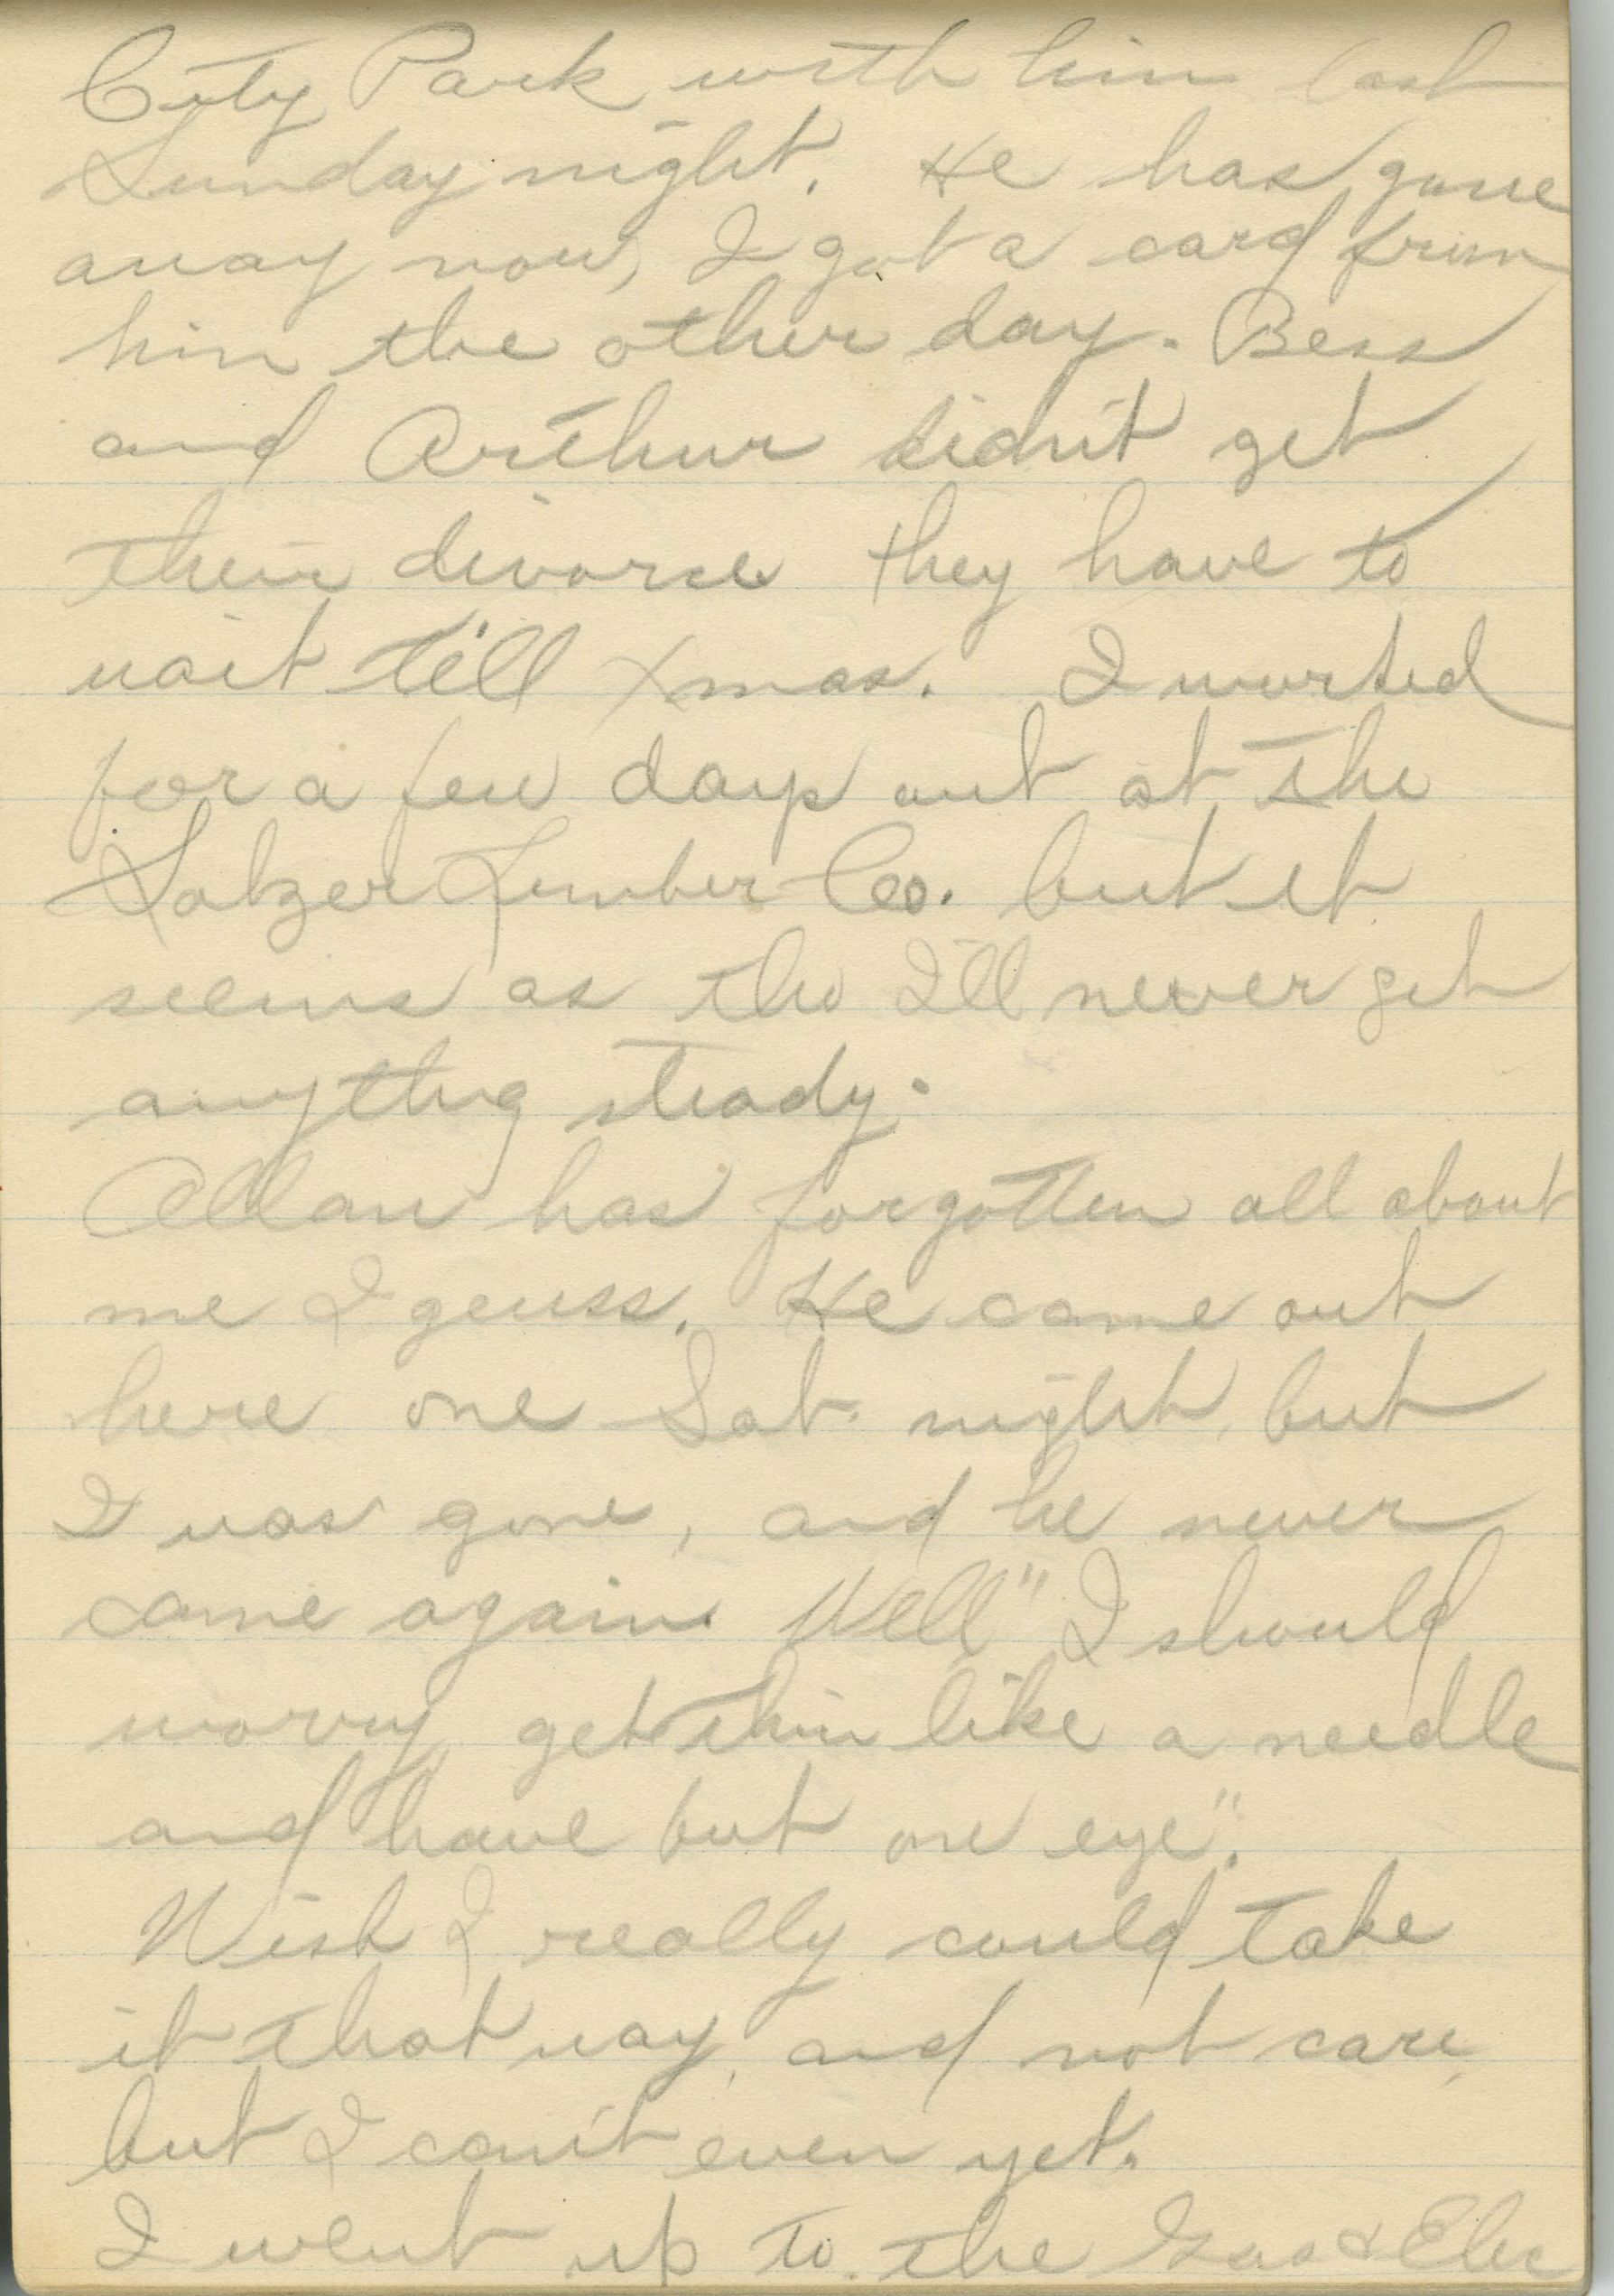 City Park with him last
Sunday night. He has gone
away now, I got a card from
him the other day. Bess
and Arthur didn't get
their divorse they have to
wait till Xmas. I worked
for a few days out at the
Salzer Lumber Co. but it
seems as tho I'll never get
anythng steady.
Allan has forgotten all about
me I geuss. He came out
here one Sat. night, but
I was gone, and he never
came again. Well" I should
worry, get thin like a needle
and have but one eye".
Wish I really could take
it that way, and not care,
but I can't even yet.
I went up to the Gas & Elec